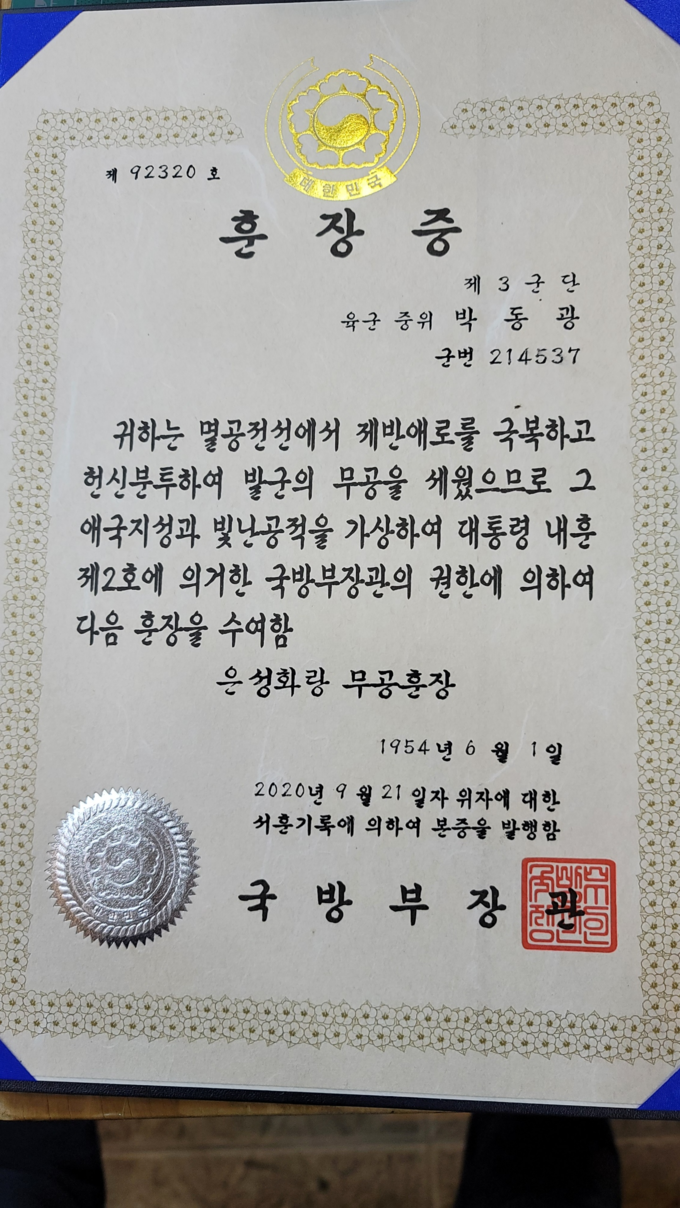 대한민국
제 92320 호
훈장증
제 3 군단
육군 중위 박동광
군번 214537
귀하는 멸공전선에서 제반애로를 극복하고
헌신분투하여 발군의 무공을 세웠으므로 그
애국지성과 빛난공적을 가상하여 대통령 내훈
제2호에 의거한 국방부장관의 권한에 의하여
다음 훈장을 수여함
은성화랑 무공훈장
1954년 6 월 1일
2020년 9 월 21 일자 위자에 대한
서훈기록에 의하여 본증을 발행함
국방부장관
대한민국